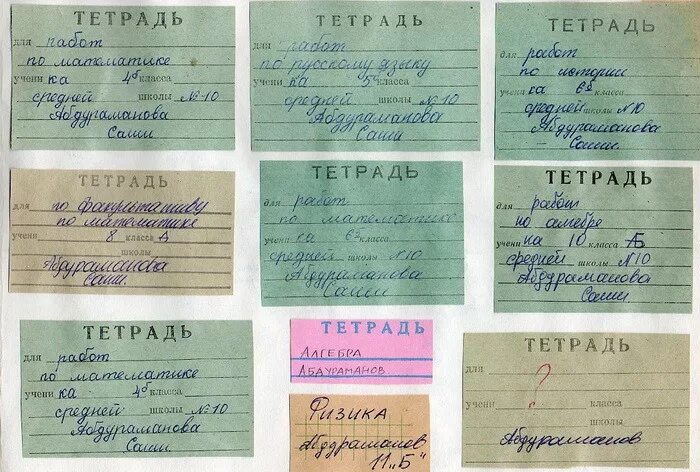 ТЕТРАДЬ
для работ
по математике
учени ка 4б класса
средней школы №10
Абдураманова
Саши
ТЕТРАДЬ
для работ
по русскому языку
учени ка 5б класса
средней школы №10
Абдураманова
Саши
ТЕТРАДЬ
для работ
по истории
учени ка 6б класса
средней школы №10
Абдураманова
Саши.
ТЕТРАДЬ
для по факультативу
по математике
учени 8 класса А
школы
Абдураманова
Саши.
ТЕТРАДЬ
для работ
по математике
учени ка 6б класса
средней школы №10
Абдураманова
Саши
ТЕТРАДЬ
для работ
по алгебре
учени ка 10 класса Б
средней школы №10
Абдураманова
Саши
ТЕТРАДЬ
для работ
по математике
учени ка 4б класса
средней школы №10
Абдураманова
Саши
ТЕТРАДЬ
АЛГЕБРА
АБДУРАМАНОВ
Физика
Абдураманов
11 „Б"
ТЕТРАДЬ
для ?
учени класса
школы
Абдураманов